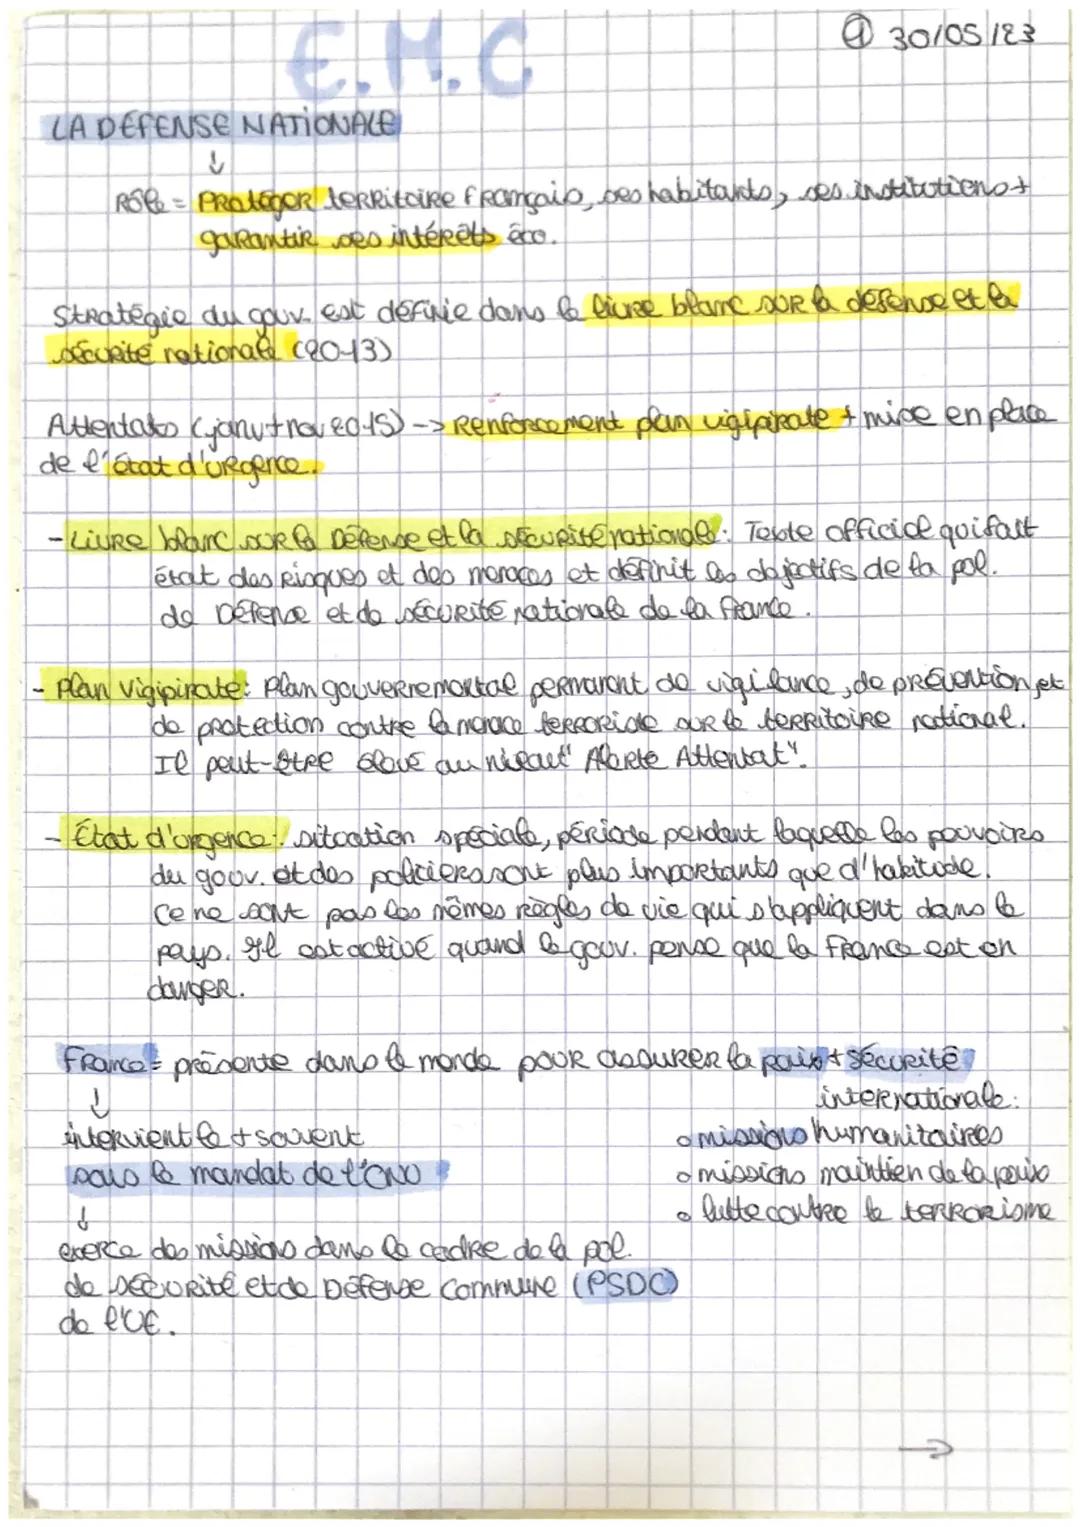 E.M.C
① 30/05/23
LA DÉFENSE NATIONALE
↓
Rôle = Protéger territoire français, ses habitants, ses institutions +
garantir ses intérêts éco.
Stratégie du gouv. est définie dans le livre blanc sur la défense et la
sécurité nationale (2013)
Attentats (janv + nov 2015) -> Renforcement plan vigipirate + mise en place
de l'état d'urgence.
- Livre blanc sur la Défense et la sécurité nationale : Texte officiel qui fait
état des risques et des menaces et définit les objectifs de la pol.
de Défense et de sécurité nationale de la France.
- Plan vigipirate : Plan gouvernemental permanent de vigilance, de prévention et
de protection contre la menace terroriste sur le territoire national.
Il peut-être élevé au niveau " Alerte Attentat".
- État d'urgence : situation spéciale, période pendant laquelle les pouvoirs
du gouv. et des policiers sont plus importants que d'habitude.
Ce ne sont pas les mêmes règles de vie qui s'appliquent dans le
pays. Il est activé quand le gouv. pense que la France est en
danger.
France = présente dans le monde pour assurer la paix + sécurité
internationale :
↓
intervient le + souvent
sous le mandat de l'ONU
o missions humanitaires
o missions maintien de la paix
o lutte contre le terrorisme
↓
exerce des missions dans le cadre de la pol.
de sécurité et de Défense Commune (PSDC)
de l'UE.
→